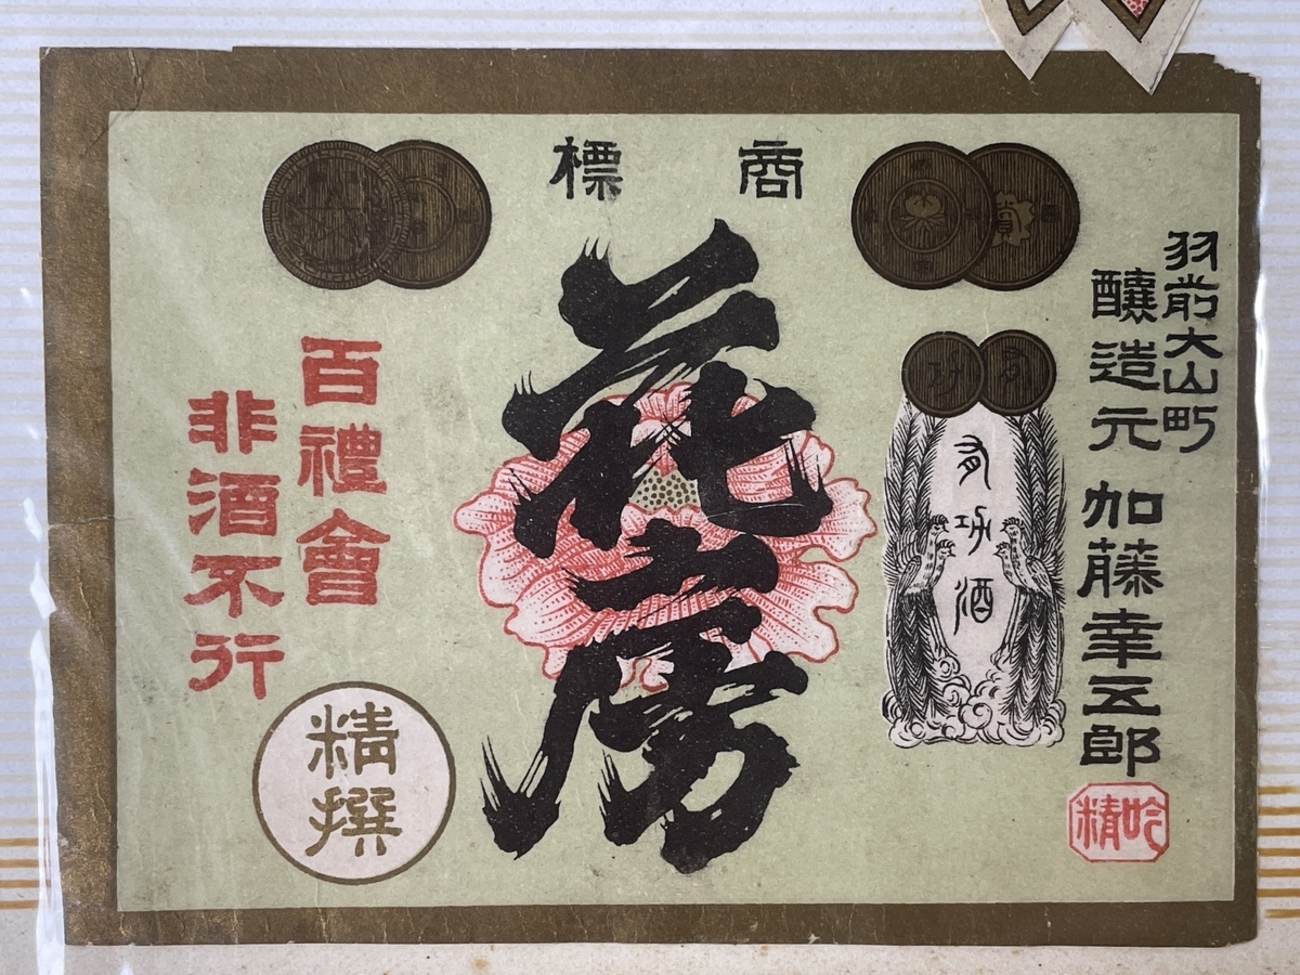 商標
羽前大山町
醸造元 加藤幸五郎
吟精
有功酒
有功
花房
百禮會
非酒不行
精撰